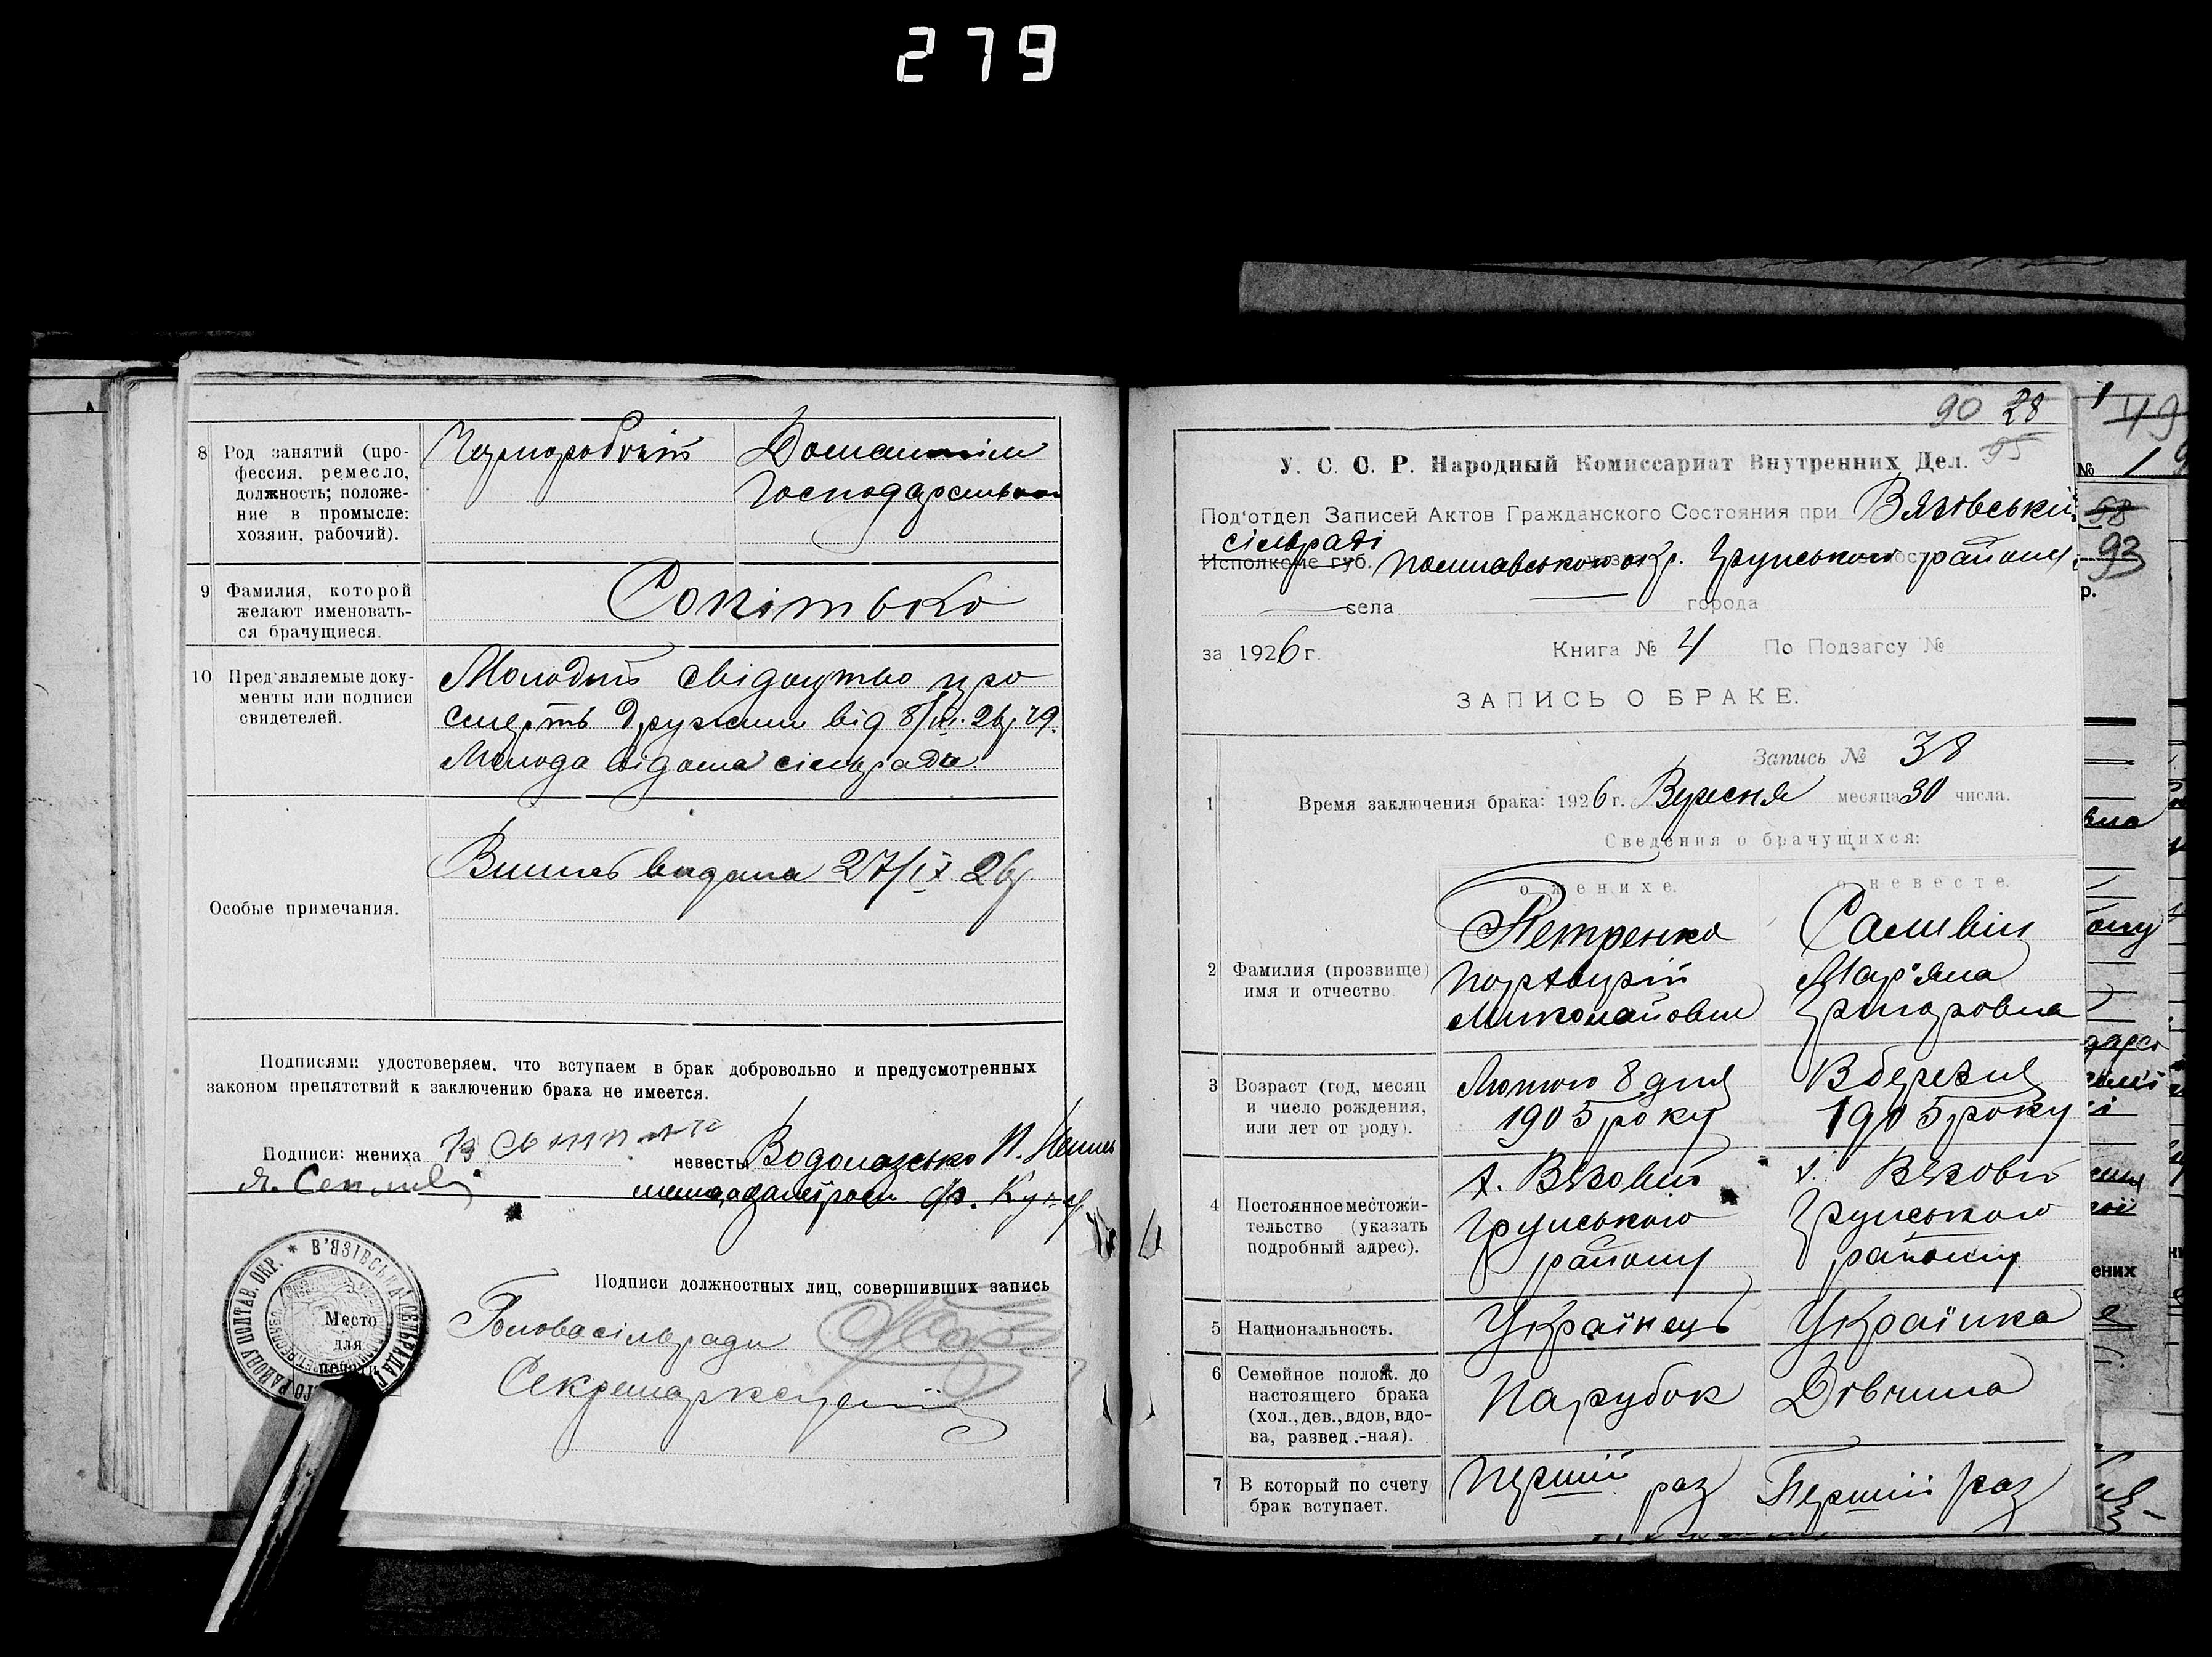 279
8 Род занятий (про-
фессия, ремесло,
должность; положе-
ние в промысле:
хозяин, рабочий).
Чорноробочій
Домашнім
господарством
9 Фамилия, которой
желают именовать-
ся брачущиеся.
Сопітько
10 Пред'являемые доку-
менты или подписи
свидетелей.
Молодий свідоцтво про
смерть дружини від 8/III. 26р
Молода відома сільраді
Особые примечания.
Випис видана 27/IX 26р.
Подписями удостоверяем, что вступаем в брак добровольно и предусмотренных
законом препятствий к заключению брака не имеется.
Подписи: жениха
невесты Водолазсько
Подписи должностных лиц, совершивших запись
Голова сільради
Секретар
* В'ЯЗІВСЬКА СЕЛЬРАДА
ПОЛТАВ. ОКР.
Место
для
печати
90 28
95
У. С. С. Р. Народный Комиссариат Внутренних Дел.
Под'отдел Записей Актов Гражданского Состояния при Вязовській
сільраді
Исполкоме губ. Полтавського окр. Грунського району
села города
за 1926 г. Книга № 4 По Подзагсу №
ЗАПИСЬ О БРАКЕ.
Запись № 38
1 Время заключения брака: 1926 г. Вересня месяца 30 числа.
Сведения о брачущихся:
о женихе. о невесте.
2 Фамилия (прозвище)
имя и отчество.
Петренко
Порхвирій
Миколайович
Саливін
Мар'яна
Григоровна
3 Возраст (год, месяц
и число рождения,
или лет от роду).
Лютого 8 дня
1905 року
В березня
1905 року
4 Постоянное местожи-
тельство (указать
подробный адрес).
х. Вязовий
Грунського
району
х. Вязовий
Грунського
району
5 Национальность.
Українець
Українка
6 Семейное полож. до
настоящего брака
(хол., дев., вдов, вдо-
ва, развед.-ная).
Парубок
Дівчина
7 В который по счету
брак вступает.
Перший раз
Перший раз
№ 19
93